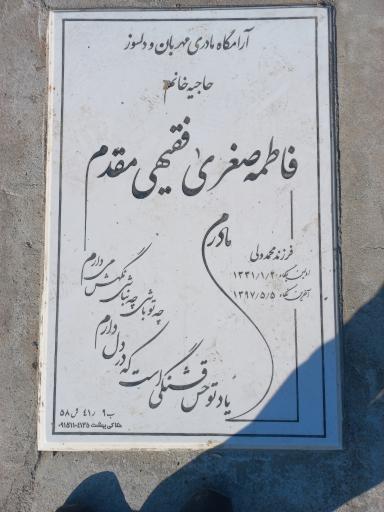 آرامگاه مادری مهربان و دلسوز
حاجیه خانم
فاطمه صغری فقیهی مقدم
فرزند محمد ولی
اولین نگاه ۱۳۳۱/۱/۲
آخرین نگاه ۱۳۹۷/۵/۵
مادرم
یاد تو حس قشنگی است
که در دل دارم
چه تو باشی چه نباشی
نگهش می دارم
ب ۹ ر ۴۱ ش ۵۸